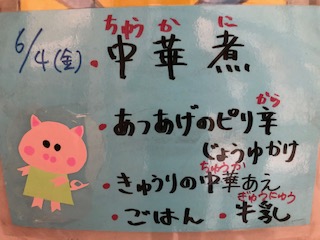 6/4(金)
ちゅうかに
・中華煮
から
・あつあげのピリ辛
じょうゆかけ
ちゅうか
・きゅうりの中華あえ
ぎゅうにゅう
・ごはん ・牛乳